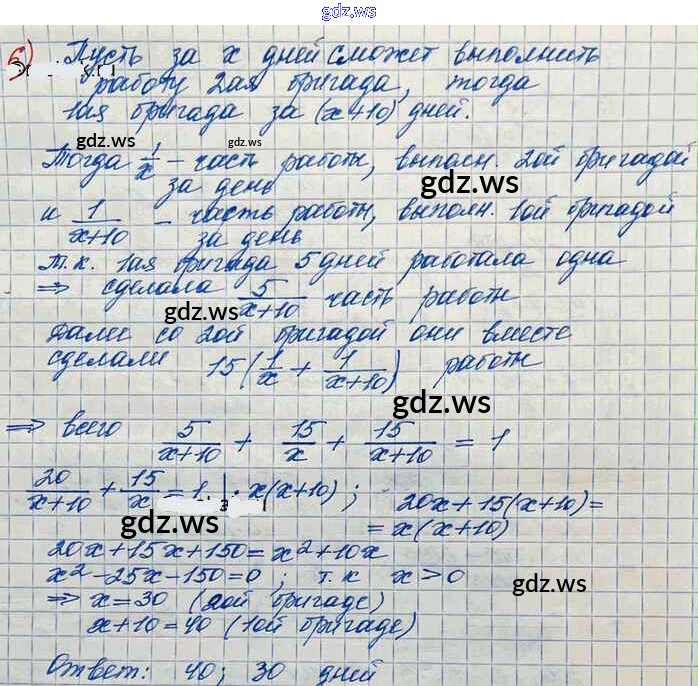 gdz.ws
6) Пусть за x дней сможет выполнить
работу 2ая бригада, тогда
1ая бригада за (x+10) дней.
gdz.ws gdz.ws
Тогда 1/x – часть работы, выполн. 2ой бригадой
за день
gdz.ws
и 1/(x+10) – часть работы, выполн. 1ой бригадой
за день
т.к. 1ая бригада 5 дней работала одна
⇒ сделала 5/(x+10) часть работы
gdz.ws
Далее со 2ой бригадой они вместе
сделали 15(1/x + 1/(x+10)) работы
gdz.ws
⇒ всего 5/(x+10) + 15/x + 15/(x+10) = 1
20/(x+10) + 15/x = 1. | · x(x+10) ; 20x+15(x+10)=
= x(x+10)
gdz.ws
20x+15x+150=x²+10x
x²-25x-150=0 ; т.к x>0
gdz.ws
⇒ x=30 (2ой бригаде)
x+10=40 (1ой бригаде)
Ответ: 40; 30 дней
gdz.ws